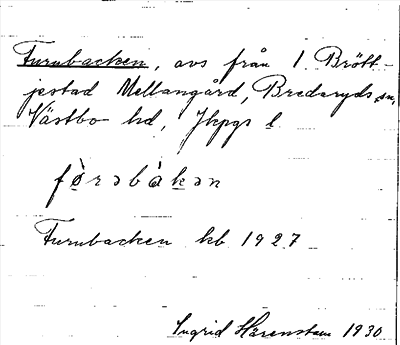 Furubacken, avs från 1 Brött-
jestad Mellangård, Bredaryds sn,
Västbo hd, Jkpgs l
fò̤rəbàkən
Furubacken kb 1927
Ingrid Härenstam 1930